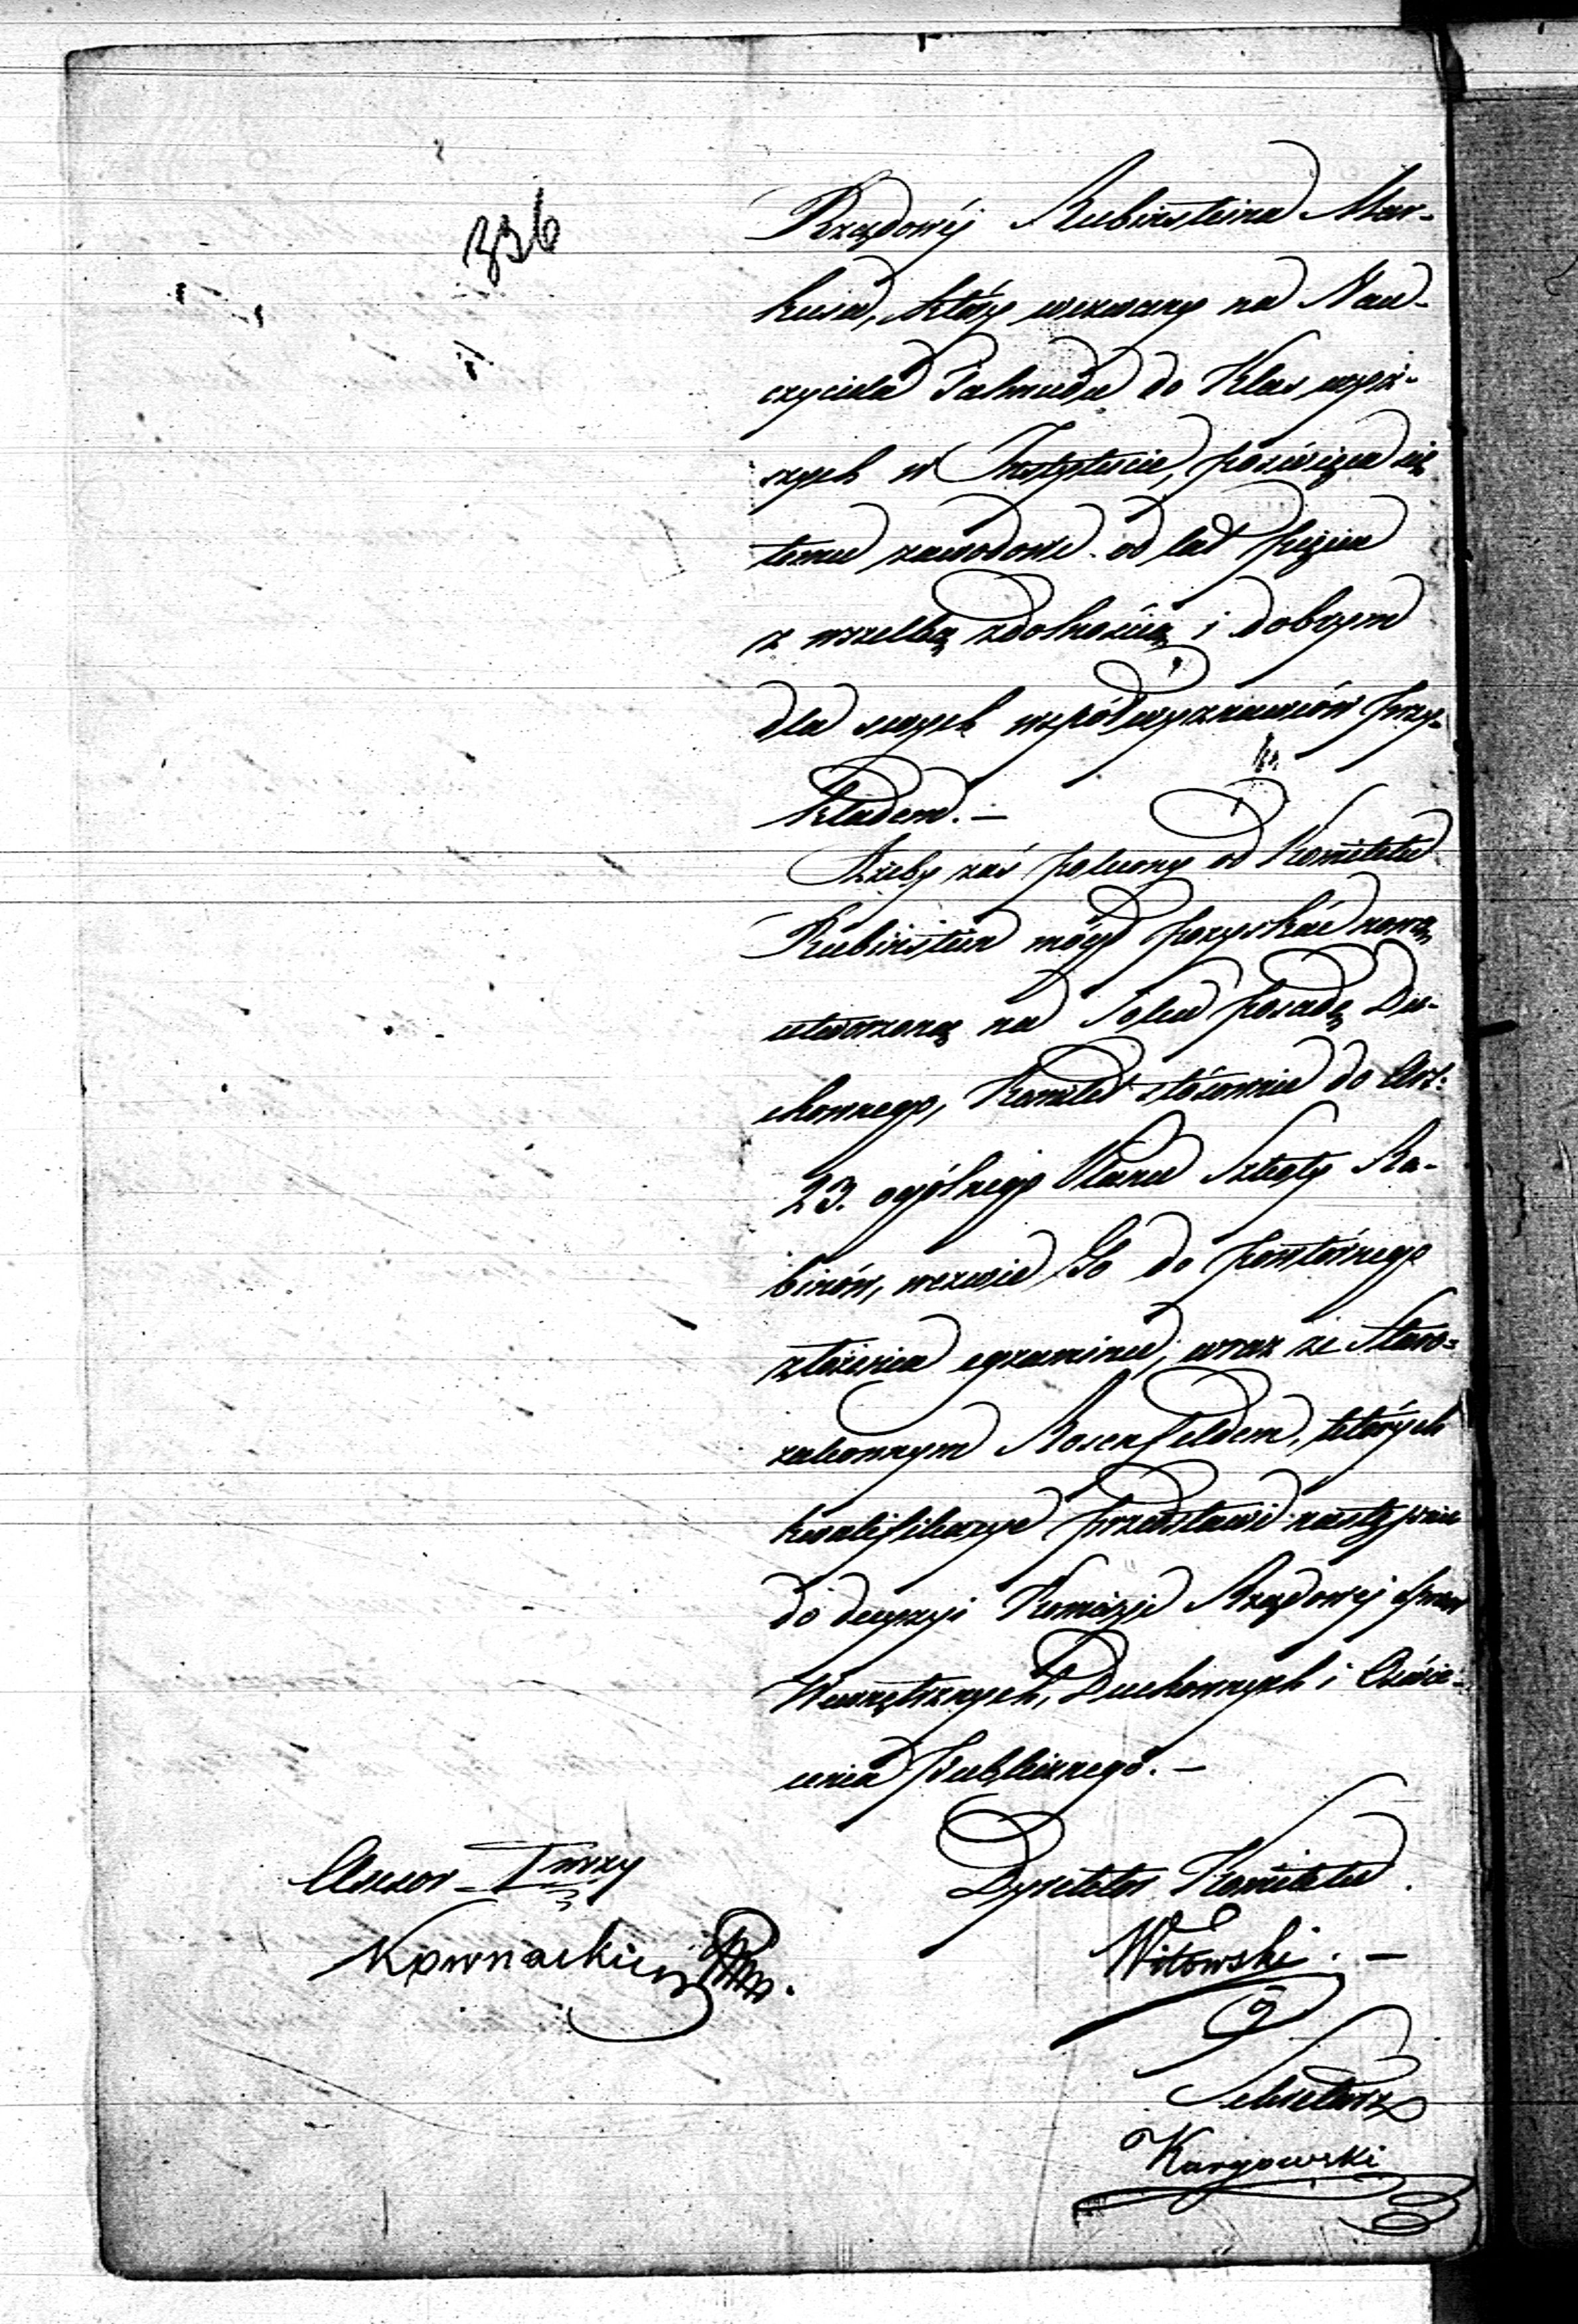 336
Rządowéj Rubinsteina Mar-
kusa, który wezwany na Nau-
czyciela Talmudu do Klas wyż-
szych w Instytucie, poświęca się
temu zawodowi od lat pięciu
z wszelką zdolnością i dobrym
dla swych współwyznawców przy-
kładem. —
Ażeby zaś polecony od Komitetu
Rubinstein mógł pozyskać nową
utworzoną na Solcu posadę Du-
chownego, Komitet stósownie do Art:
23. ogólnego Planu Szkoły Ra-
binów, wezwie Go do powtórnego
złożenia egzaminu, wraz ze Staro-
zakonnym Rosenfeldem, których
kwalifikacye przedstawi następnie
do decyzyi Komissyi Rządowéj Spraw
Wewnętrznych, Duchownych i Oświe-
cenia Publicznego. —
Dyrektor Komitetu.
Witowski. —
Assesor
Kownacki
Sekretarz
Karyowski